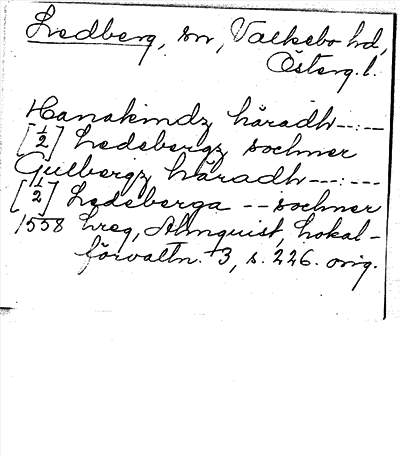 Ledberg, sn, Valkebo hd,
Österg. l.
Hanakindz häradh --:--
[1/2] Ledebergz sochner
Gulbergz häradh ---:---
[1/2] Ledeberga -- sochner
1558 hreg, Almquist, Lokal-
förvaltn. 3, s. 226. orig.